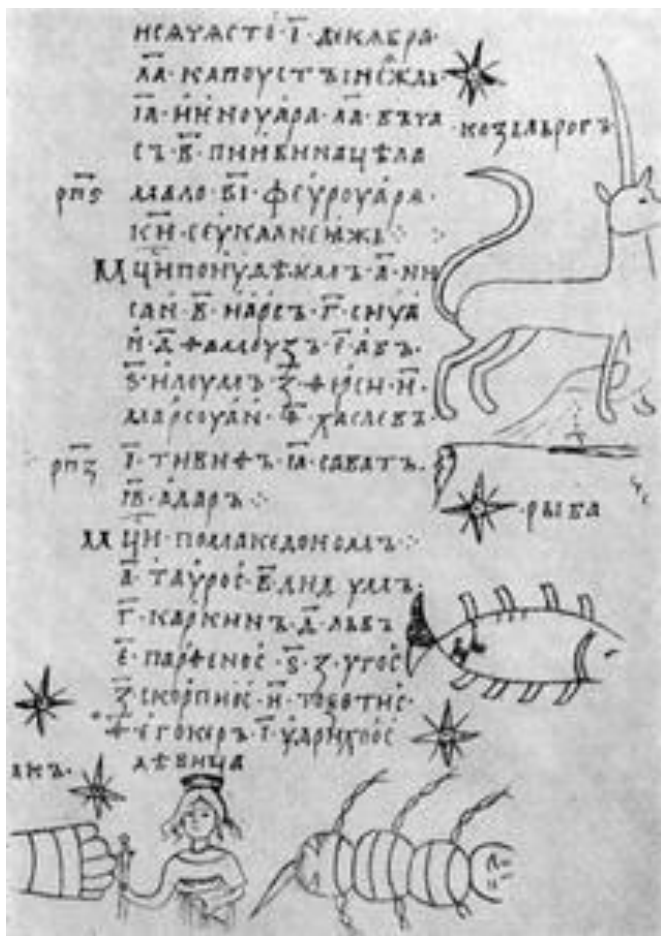 нєѧчѧсто· і҃· дєкабра·
ла· капоустъі нє ѣждь·
іа҃· ианноуара· ла· въча
съ· в҃· пиивинацѣла
рп҃ѕ
мало· ві҃· фєуроуарѧ·
к҃и· сєуклаинєѣжь ⁘
мц҃и поиудѣкмъ· а҃· ни
сан· в҃· иарєс· г҃· сиуа
н· д҃· ѳамоузъ· є҃· абъ·
ѕ҃· илоумъ· з҃· ѳрєси· и҃·
марсоуан· ѳ҃· хаслєвъ·
рп҃з
і҃· тивиѳъ· іа҃· саватъ·
ів҃· адаръ ⁘
мц҃и· помакєдономъ ⁘
а҃· таурос· в҃· дидумъ·
г҃· каркинъ· д҃· львъ
є҃· парѳєнос· ѕ҃· зугос
з҃· скорпиос· и҃· тоѯотис·
ѳ҃· єгокєръ· і҃· удрихоос
козьльрогъ
рыба
дѣвица